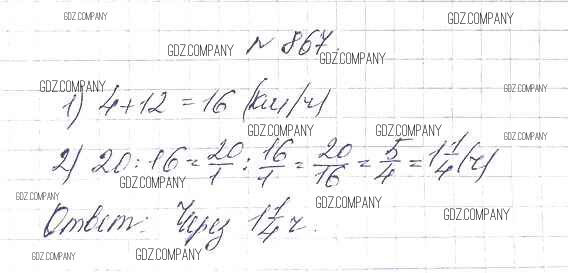 GDZ.COMPANY GDZ.COMPANY
GDZ.COMPANY № 867. GDZ.COMPANY
GDZ.COMPANY GDZ.COMPANY
1) 4+12 = 16 (км/ч)
GDZ.COMPANY GDZ.COMPANY GDZ.COMPANY
2) 20 : 16 = 20/1 : 16/1 = 20/16 = 5/4 = 1 1/4 (ч)
GDZ.COMPANY
GDZ.COMPANY GDZ.COMPANY GDZ.COMPANY
Ответ: через 1 1/4 ч.
GDZ.COMPANY GDZ.COMPANY